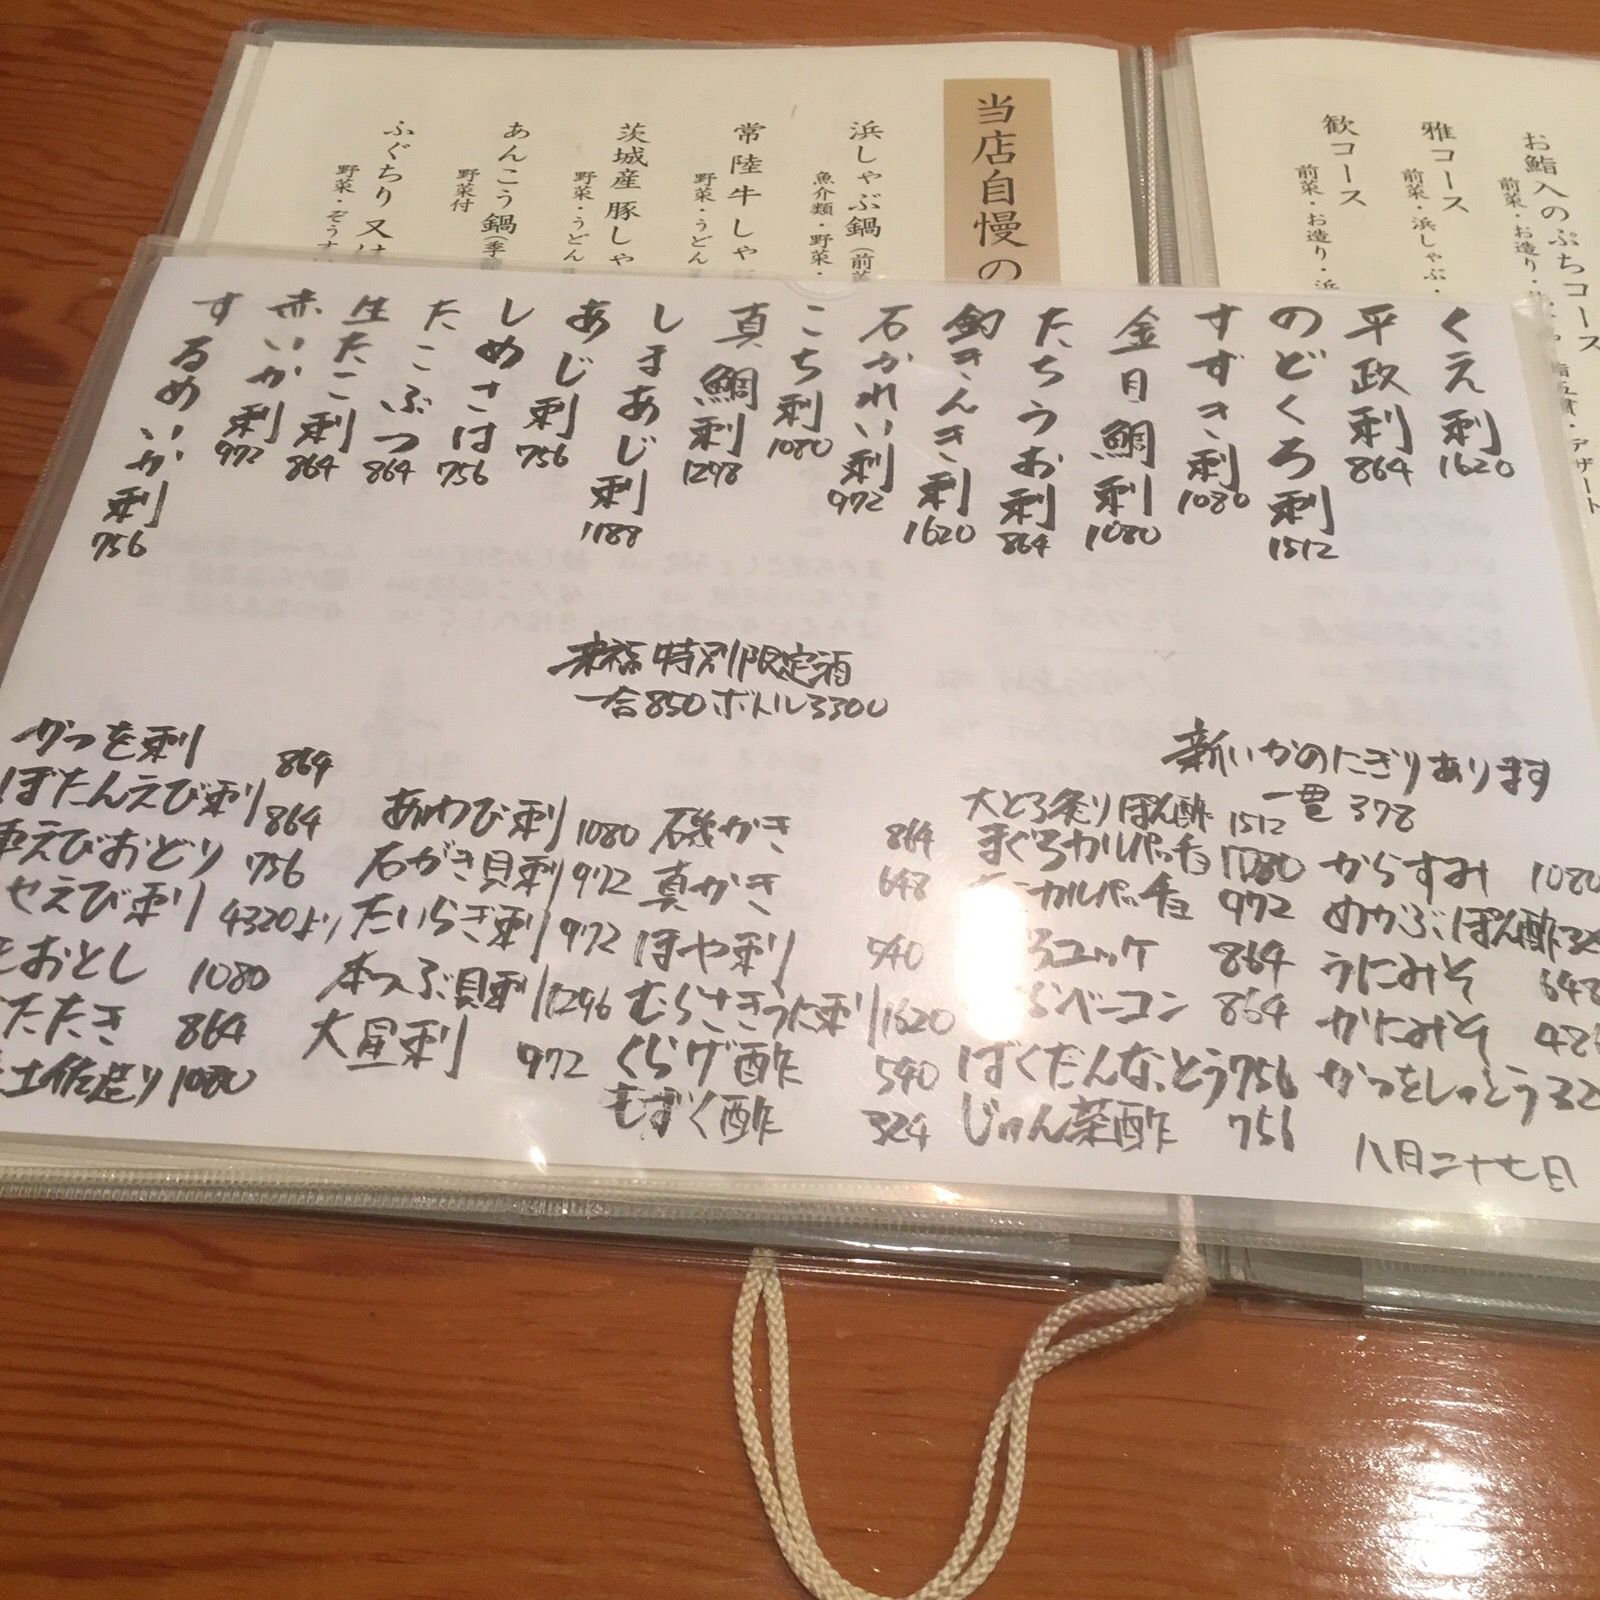 お鮨入のぷちコース
前菜・お造り・
雅コース
前菜・浜しゃぶ・
歓コース
前菜・お造り・浜
当店自慢の
浜しゃぶ鍋(前菜
魚介類・野菜・
常陸牛しゃ
野菜・うどん
茨城産豚しゃ
野菜・うどん
あんこう鍋(季
野菜付
ふぐちり又は
野菜・ぞうす
くえ刺 1620
平政刺 864
のどくろ刺 1512
すずき刺 1080
金目鯛刺 1080
たちうお刺 864
釣きんき刺 1620
石かれい刺 972
こち刺 1080
真鯛刺 1298
しまあじ刺 1188
あじ刺 756
しめさば 756
たこぶつ 864
生たこ刺 864
赤いか刺 972
するめいか刺 756
来福特別限定酒
一合850ボトル3300
新いかのにぎりあります
一貫 378
からすみ 1080
めかぶぽん酢
うにみそ 648
かにみそ
かつをしゅとう
大とろ炙りぽん酢 1512
まぐろカルパッチョ 1080
カルパッチョ 972
ろユッケ 864
らベーコン 864
ばくだんなっとう 756
じゅん菜酢 756
磯かき 864
真かき 648
ほや刺 540
むらさきうに刺 1620
くらげ酢 540
もずく酢 324
あわび刺 1080
石がき貝刺 972
たいらぎ刺 972
本つぶ貝刺 1296
大星刺 972
かつを刺 864
ぼたんえび刺 864
車えびおどり 756
せえび刺 4320より
おとし 1080
たたき 864
土佐造り 1080
八月二十七日